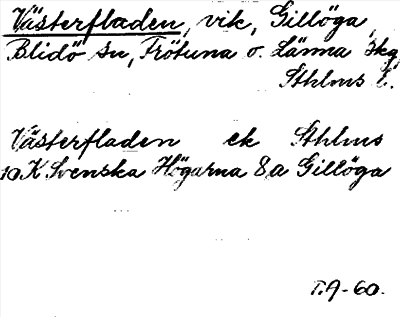 Västerfladen, vik, Gillöga,
Blidö sn, Frötuna o. Länna skg
Sthlms l.
Västerfladen ek Sthlms
10K Svenska Högarna 8a Gillöga
T.A-60.